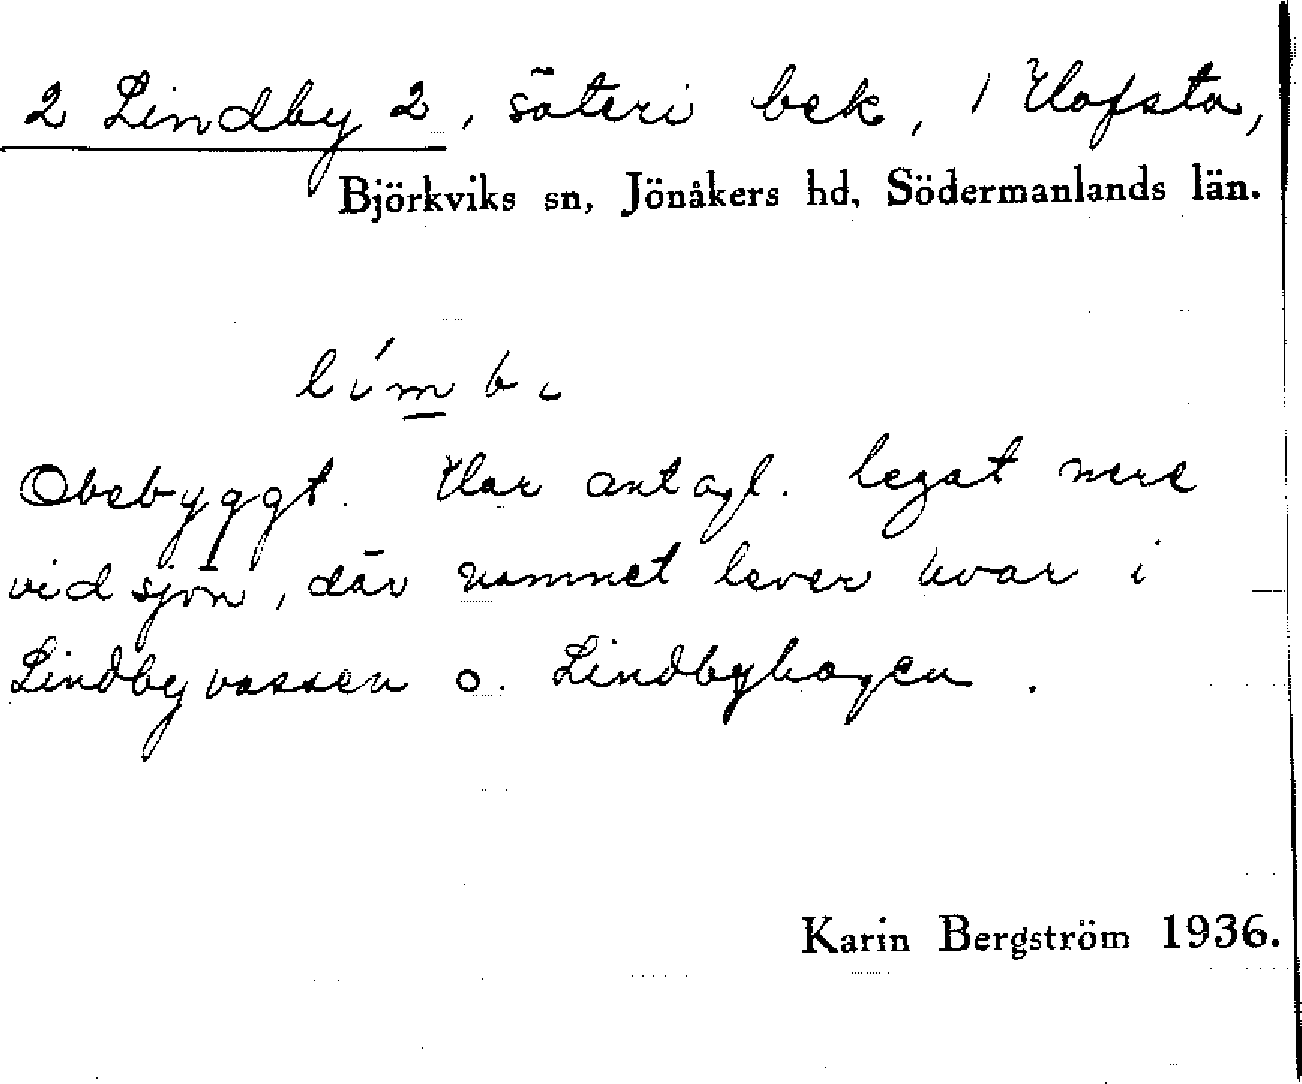 2 Lindby 2, säteri bek, / Hofsta,
Björkviks sn, Jönåkers hd, Södermanlands län.
lím b ι
Obebyggt. Har antagl. legat nere
vid sjön, där namnet lever kvar i
Lindbyvassen o. Lindbyhagen.
Karin Bergström 1936.